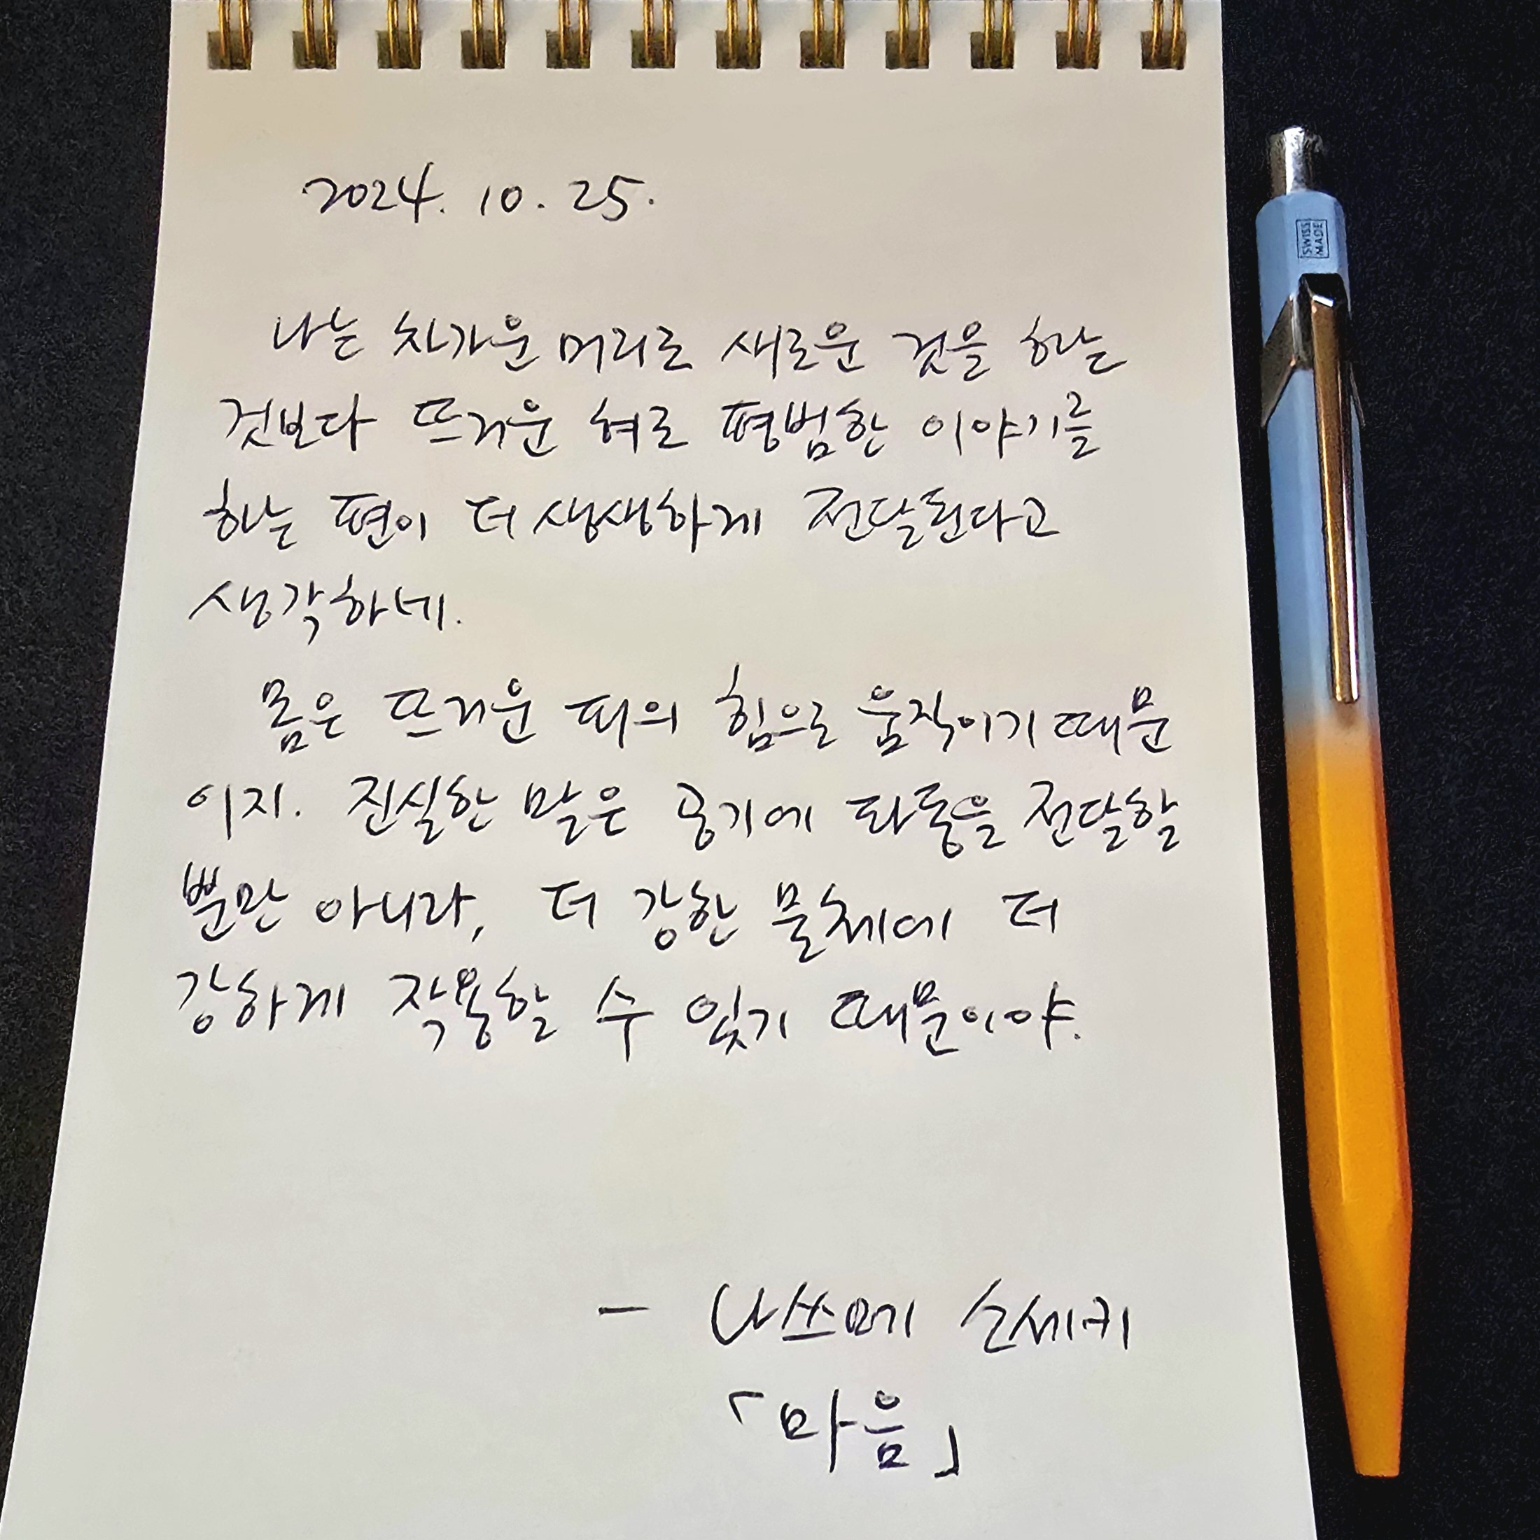 2024. 10. 25.
나는 차가운 머리로 새로운 것을 하는
것보다 뜨거운 혀로 평범한 이야기를
하는 편이 더 생생하게 전달된다고
생각하네.
몸은 뜨거운 피의 힘으로 움직이기 때문
이지. 진실한 말은 공기에 파동을 전달할
뿐만 아니라, 더 강한 물체에 더
강하게 작용할 수 있기 때문이야.
- 나쓰메 소세키
「마음」
SWISS
MADE